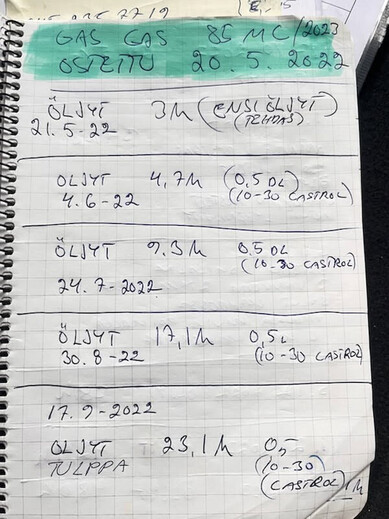 GAS GAS 85 MC/2023
OSTETTU 20.5.2022
ÖLJYT 3h (ENSIÖLJYT)
21.5-22 (TEHDAS)
OLJYT 4,7h (0,5 DL)
4.6-22 (10-30 CASTROL)
ÖLJYT 9.3h 0.5 DL
(10-30 CASTROL)
24.7-2022
ÖLJYT 17,1h 0,5L
30.8-22 (10-30 CASTROL)
17.9-2022
OLJYT 23,1h 0,5
TULPPA (10-30)
(CASTROL)